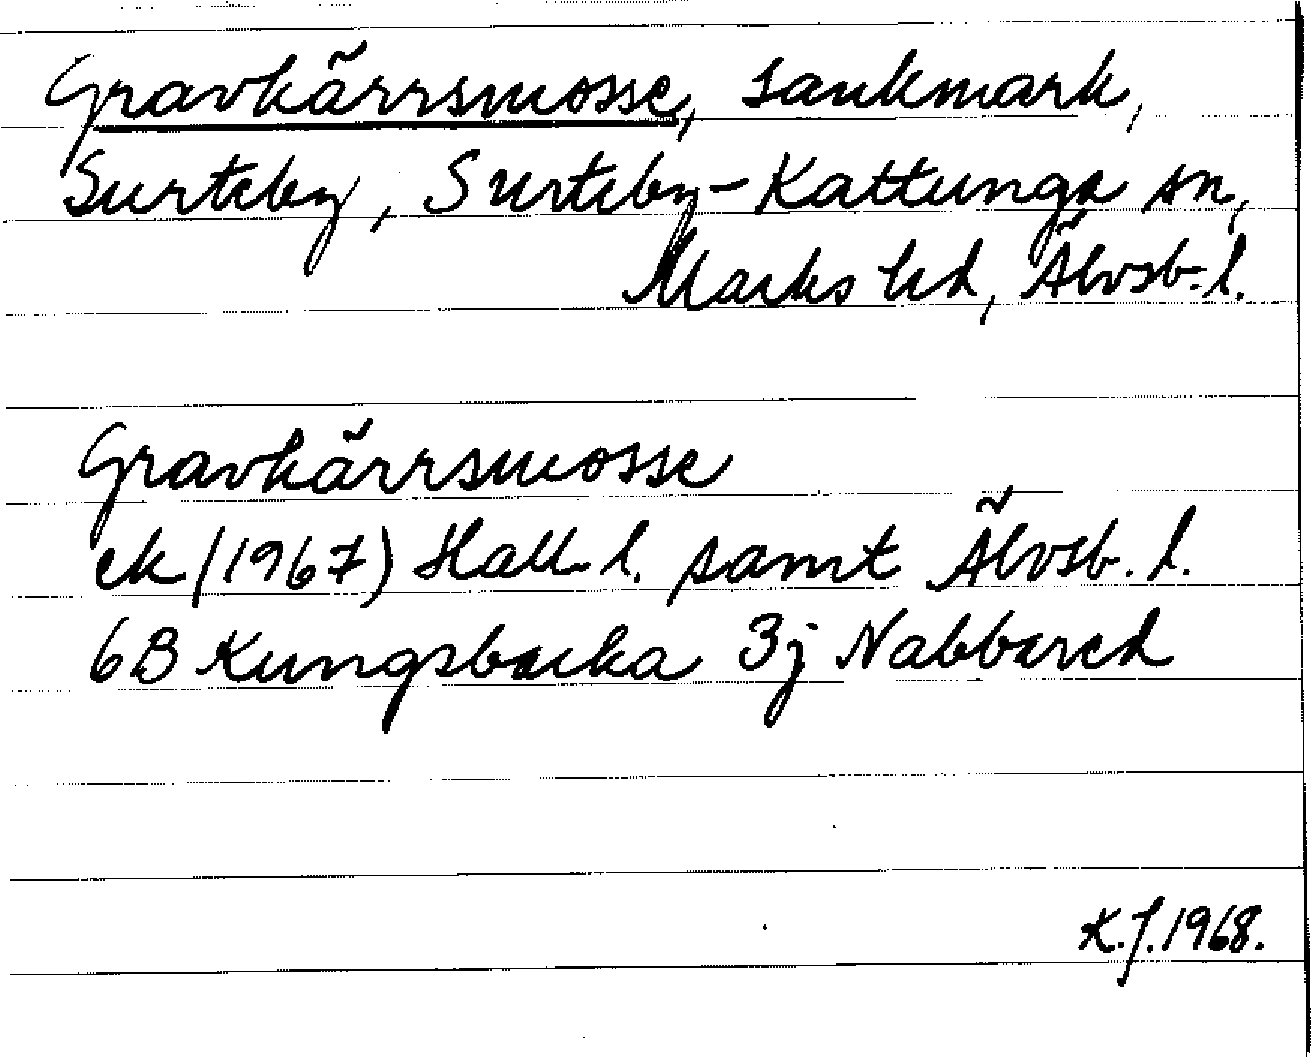 Gravkärrsmosse, sankmark,
Surteby, Surteby-Kattunga sn,
Marks hd, Älvsb. l.
Gravkärrsmosse
ek (1967) Hall. l. samt Älvsb. l.
6B Kungsbacka 3j Nabbared
K.J. 1968.